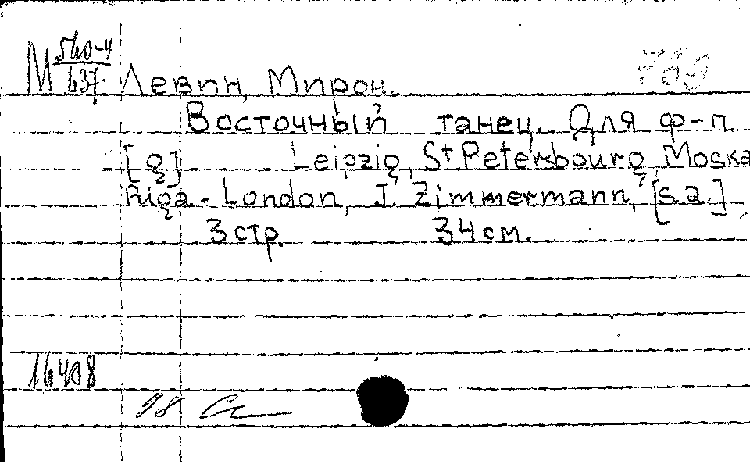 М 560-4/637 Левин, Мирон.
Восточный танец. Для ф-п.
[g] Leipzig, St Petersbourg, Moska
Riga - London, J. Zimmermann, [s.a.]
3 стр. 34 см.
16408